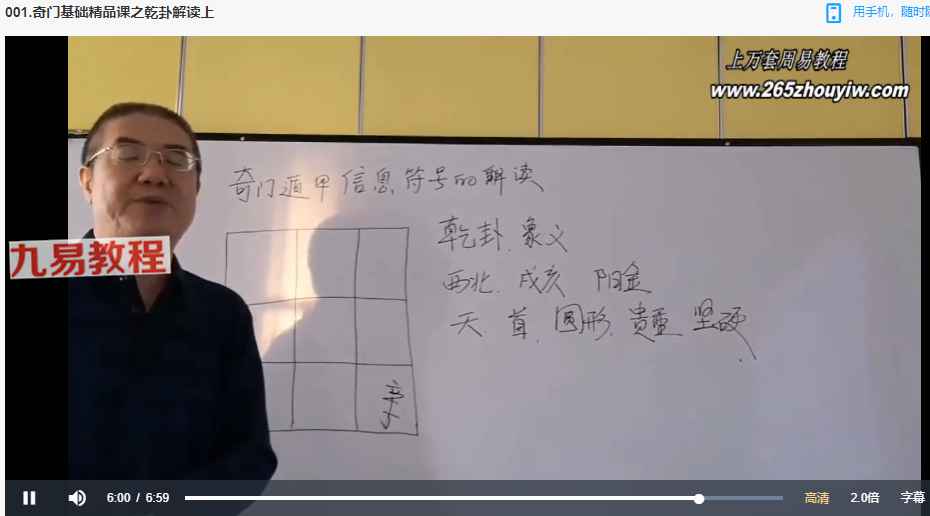 001.奇门基础精品课之乾卦解读上
用手机，随时
上万套周易教程
www.265zhouyiw.com
奇门遁甲信息符号的解读
乾卦、象义
西北、戌亥 阳金
天、首、圆形、貴重 坚硬
九易教程
6:00 / 6:59
高清
2.0倍
字幕